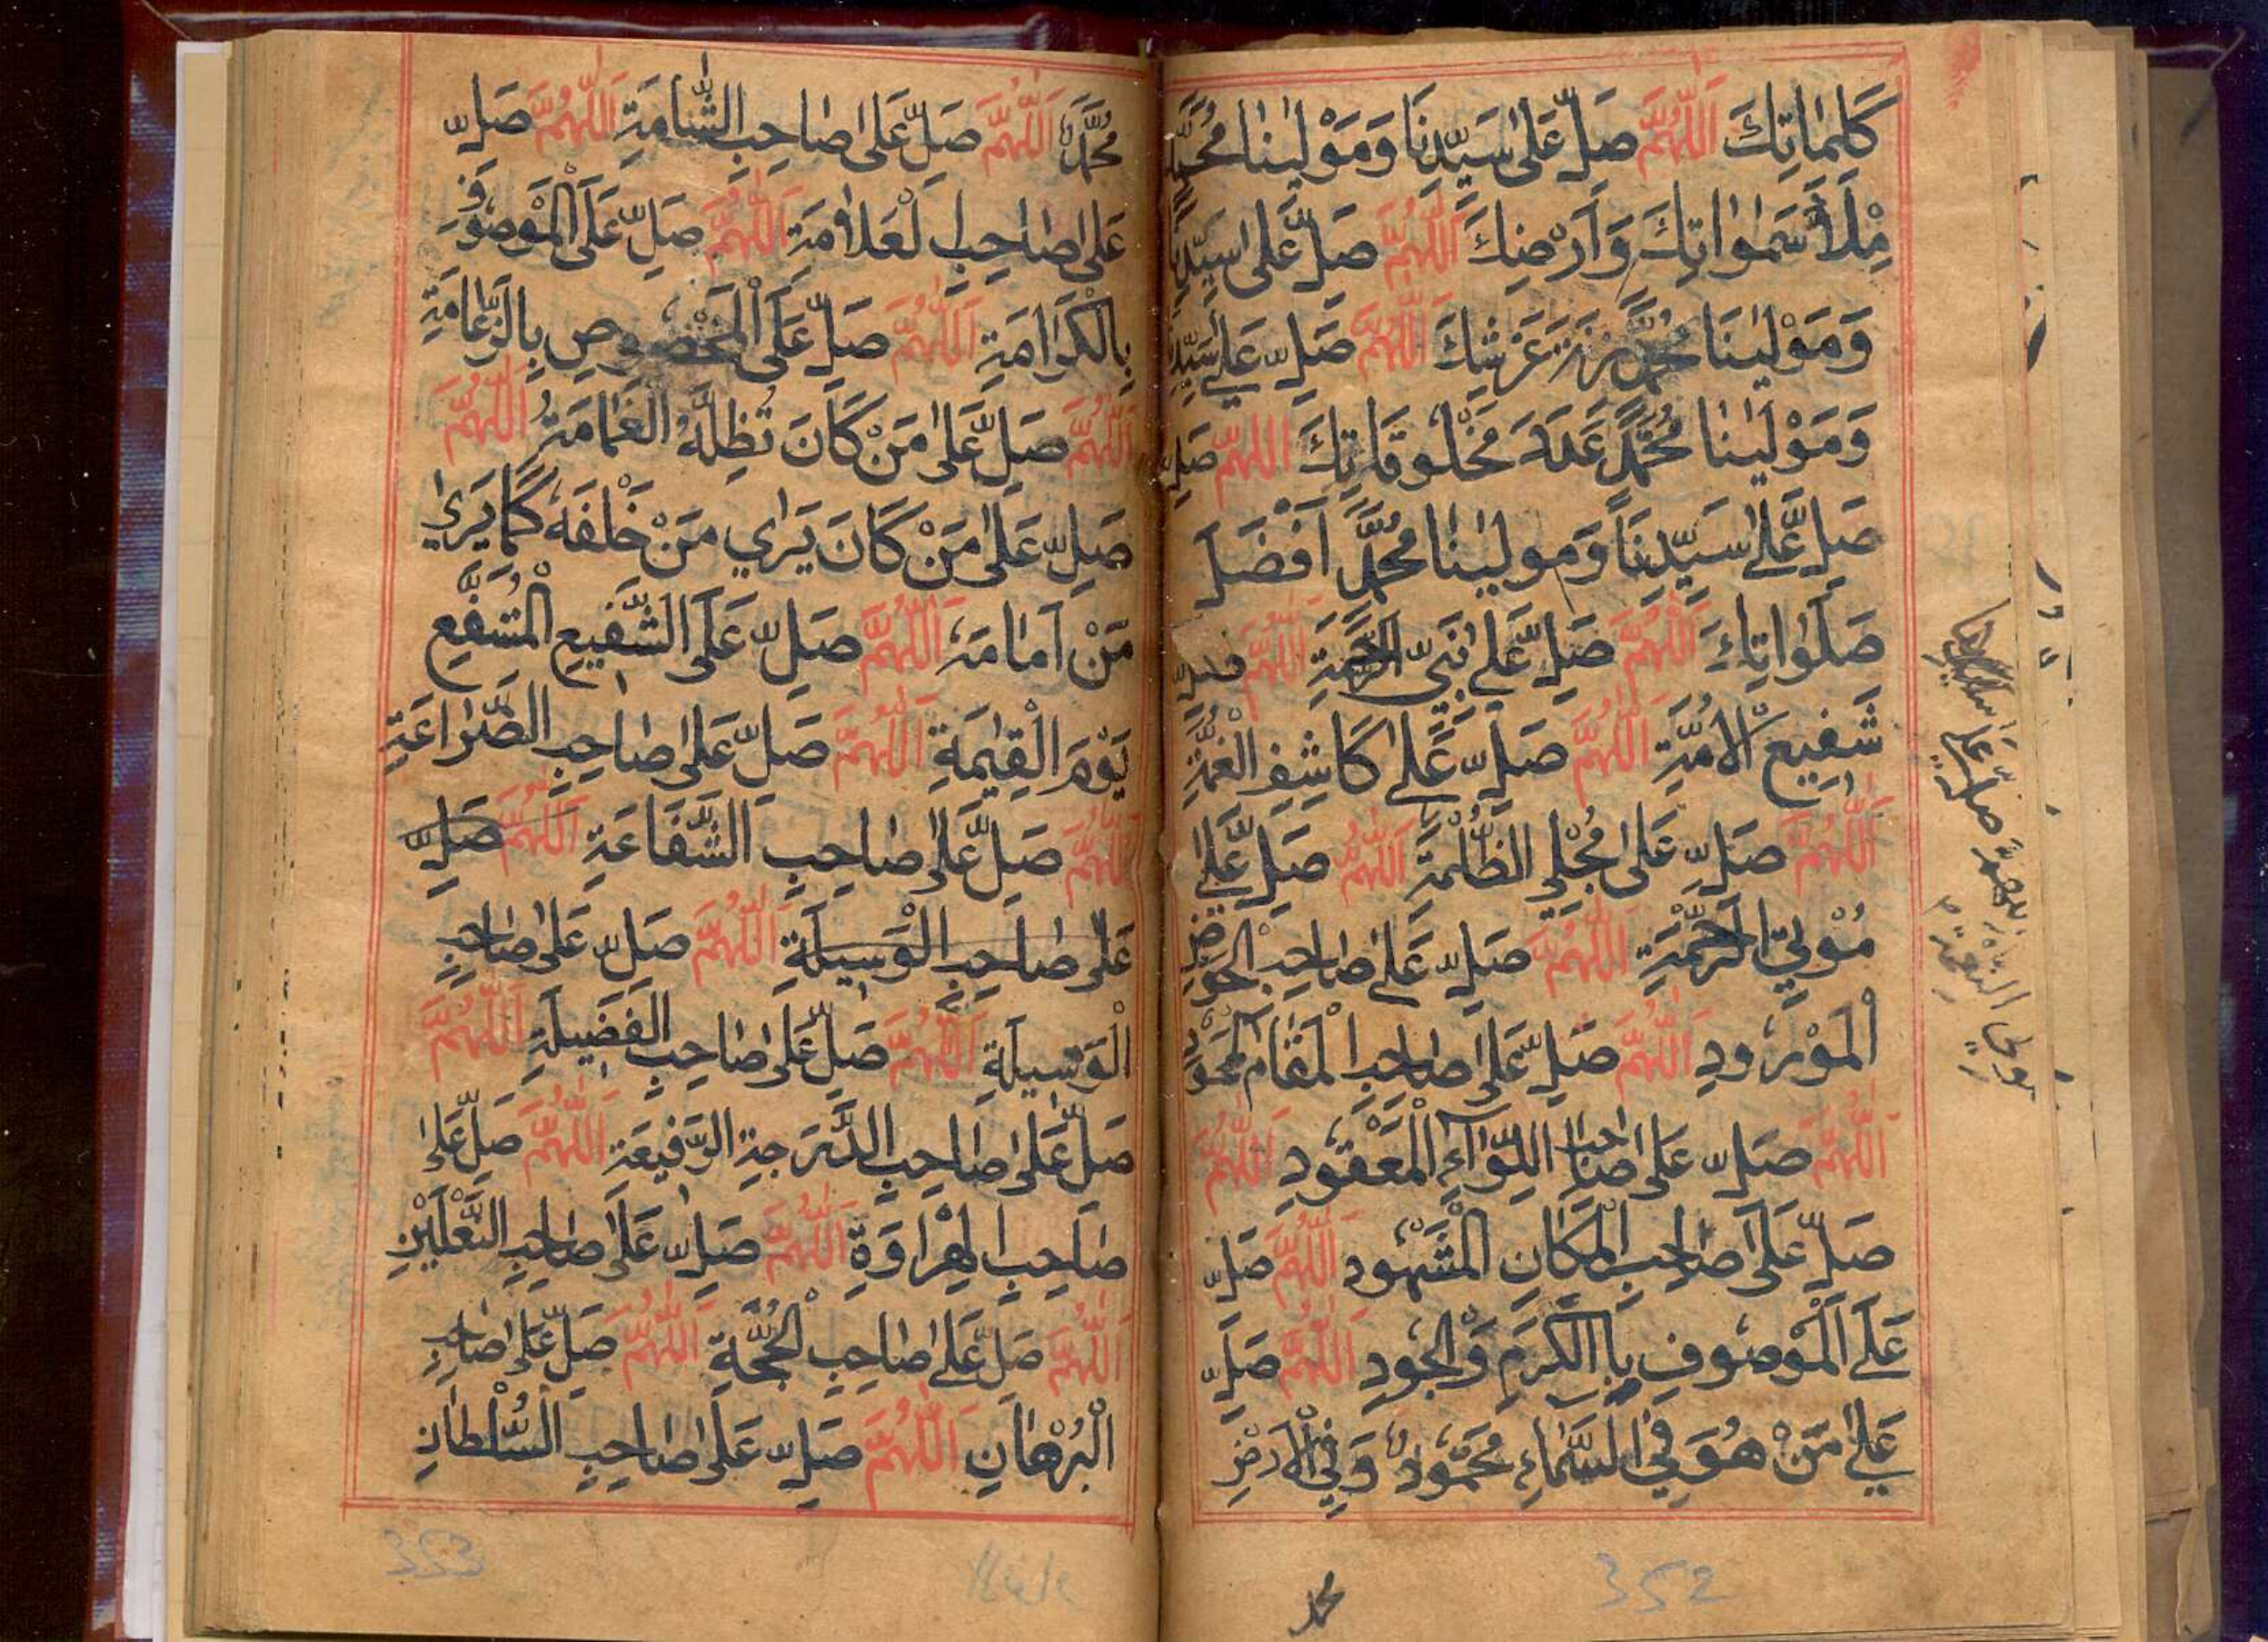 كَلِمَاتِكَ اَللّٰهُمَّ صَلِّ عَلٰى سَيِّدِنَا وَمَوْلٰينَا مُحَمَّدٍ
مِلْأَ سَمٰوَاتِكَ وَاَرْضِكَ اَللّٰهُمَّ صَلِّ عَلٰى سَيِّدِنَا
وَمَوْلٰينَا مُحَمَّدٍ زِنَةَ عَرْشِكَ اَللّٰهُمَّ صَلِّ عَلٰى سَيِّدِنَا
وَمَوْلٰينَا مُحَمَّدٍ عَدَدَ مَخْلُوقَاتِكَ اَللّٰهُمَّ صَلِّ
صَلِّ عَلٰى سَيِّدِنَا وَمَوْلٰينَا مُحَمَّدٍ اَفْضَلَ
صَلَوَاتِكَ اَللّٰهُمَّ صَلِّ عَلٰى نَبِيِّ الرَّحْمَةِ اَللّٰهُمَّ صَلِّ
شَفِيعِ الْاُمَّةِ اَللّٰهُمَّ صَلِّ عَلٰى كَاشِفِ الْغُمَّةِ
اَللّٰهُمَّ صَلِّ عَلٰى مُجْلِي الظُّلْمَةِ اَللّٰهُمَّ صَلِّ عَلٰى
مُؤْتِي الرَّحْمَةِ اَللّٰهُمَّ صَلِّ عَلٰى صَاحِبِ الْحَوْضِ
الْمَوْرُودِ اَللّٰهُمَّ صَلِّ عَلٰى صَاحِبِ الْمَقَامِ الْمَحْمُودِ
اَللّٰهُمَّ صَلِّ عَلٰى صَاحِبِ اللِّوَاءِ الْمَعْقُودِ اَللّٰهُمَّ
صَلِّ عَلٰى صَاحِبِ الْمَكَانِ الْمَشْهُودِ اَللّٰهُمَّ صَلِّ
عَلَى الْمَوْصُوفِ بِاالْكَرَمِ وَالْجُودِ اَللّٰهُمَّ صَلِّ
عَلٰى مَنْ هُوَ فِي السَّمَاءِ مَحْمُودٌ وَفِي الْاَرْضِ
محمد
352
مُحَمَّدٌ اَللّٰهُمَّ صَلِّ عَلٰى صَاحِبِ الشَّامَةِ اَللّٰهُمَّ صَلِّ
عَلٰى صَاحِبِ الْعَلَامَةِ اَللّٰهُمَّ صَلِّ عَلَى الْمَوْصُوفِ
بِالْكَرَامَةِ اَللّٰهُمَّ صَلِّ عَلَى الْمَخْصُوصِ بِالزَّعَامَةِ
اَللّٰهُمَّ صَلِّ عَلٰى مَنْ كَانَ تُظِلُّهُ الْغَمَامَةُ اَللّٰهُمَّ
صَلِّ عَلٰى مَنْ كَانَ يَرٰي مَنْ خَلْفَهُ كَمَا يَرٰى
مَنْ اَمَامَهُ اَللّٰهُمَّ صَلِّ عَلَى الشَّفِيعِ الْمُشَفَّعِ
يَوْمَ الْقِيٰمَةِ اَللّٰهُمَّ صَلِّ عَلٰى صَاحِبِ الضَّرَاعَةِ
اَللّٰهُمَّ صَلِّ عَلٰى صَاحِبِ الشَّفَاعَةِ اَللّٰهُمَّ صَلِّ
عَلٰى صَاحِبِ الْوَسِيلَةِ اَللّٰهُمَّ صَلِّ عَلٰى صَاحِبِ
الْوَسِيلَةِ اَللّٰهُمَّ صَلِّ عَلٰى صَاحِبِ الْفَضِيلَةِ اَللّٰهُمَّ
صَلِّ عَلٰى صَاحِبِ الدَّرَجَةِ الرَّفِيعَةِ اَللّٰهُمَّ صَلِّ عَلٰى
صَاحِبِ الْهِرَاوَةِ اَللّٰهُمَّ صَلِّ عَلٰى صَاحِبِ النَّعْلَيْنِ
اَللّٰهُمَّ صَلِّ عَلٰى صَاحِبِ الْحُجَّةِ اَللّٰهُمَّ صَلِّ عَلٰى صَاحِبِ
الْبُرْهَانِ اَللّٰهُمَّ صَلِّ عَلٰى صَاحِبِ السُّلْطَانِ
353